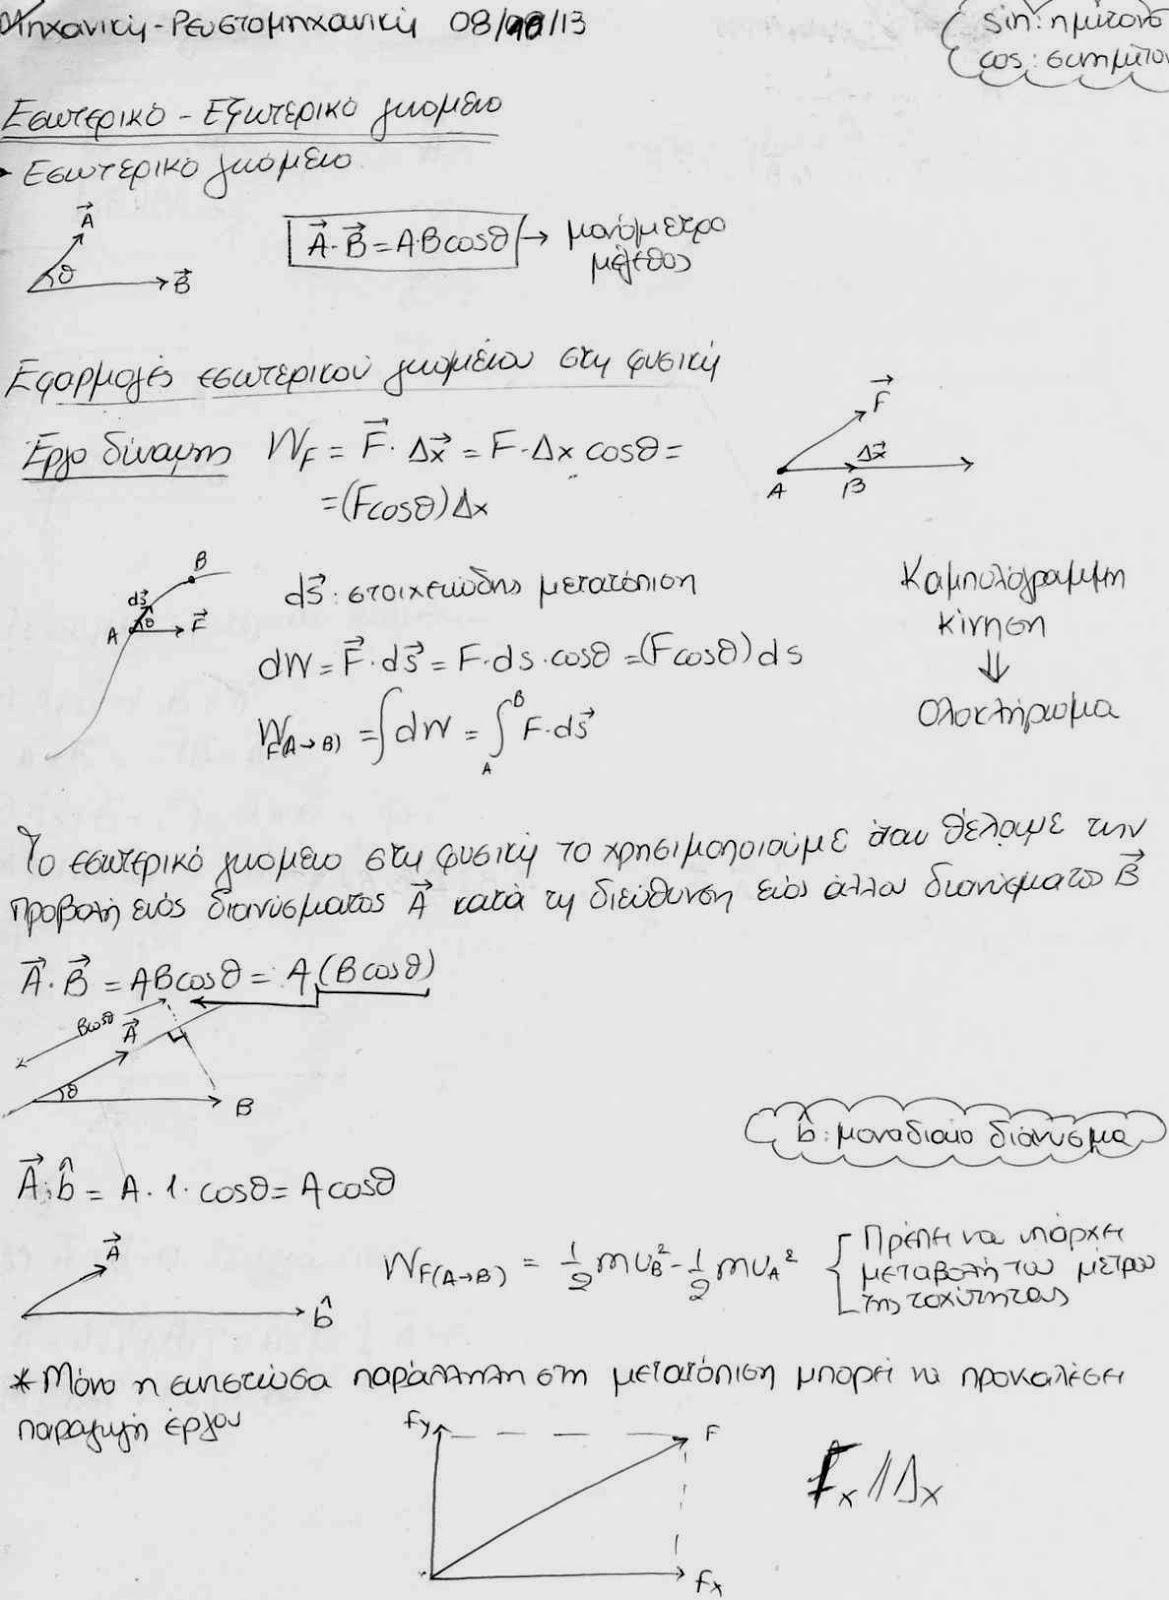 Μηχανική - Ρευστομηχανική 08/10/13
sin: ημίτονο
cos: συνημίτον
Εσωτερικό - Εξωτερικό γινόμενο
Εσωτερικό γινόμενο
A⃗
θ
B⃗
A⃗·B⃗ = A·Bcosθ → μονόμετρο
μέγεθος
Εφαρμογές εσωτερικού γινομένου στη φυσική
Έργο δύναμης W_F = F⃗·Δx⃗ = F·Δx cosθ =
= (Fcosθ)Δx
F⃗
Δx⃗
A B
B
ds⃗
θ
A F⃗
ds⃗: στοιχειώδης μετατόπιση
dW = F⃗·ds⃗ = F·ds·cosθ = (Fcosθ)ds
W_F(A→B) = ∫dW = ∫_A^B F·ds⃗
Καμπυλόγραμμη
κίνηση
⇓
Ολοκλήρωμα
Το εσωτερικό γινόμενο στη φυσική το χρησιμοποιούμε όταν θέλουμε την
προβολή ενός διανύσματος A⃗ κατά τη διεύθυνση ενός άλλου διανύσματος B⃗
A⃗·B⃗ = ABcosθ = A(Bcosθ)
Bcosθ
A⃗
θ
B
b̂: μοναδιαίο διάνυσμα
A⃗·b̂ = A·1·cosθ = Acosθ
A⃗
b̂
W_F(A→B) = 1/2 mυ_B² - 1/2 mυ_A²
Πρέπει να υπάρχει
μεταβολή του μέτρου
της ταχύτητας
* Μόνο η συνιστώσα παράλληλη στη μετατόπιση μπορεί να προκαλέσει
παραγωγή έργου
Fy
F
Fx
Fx // Δx